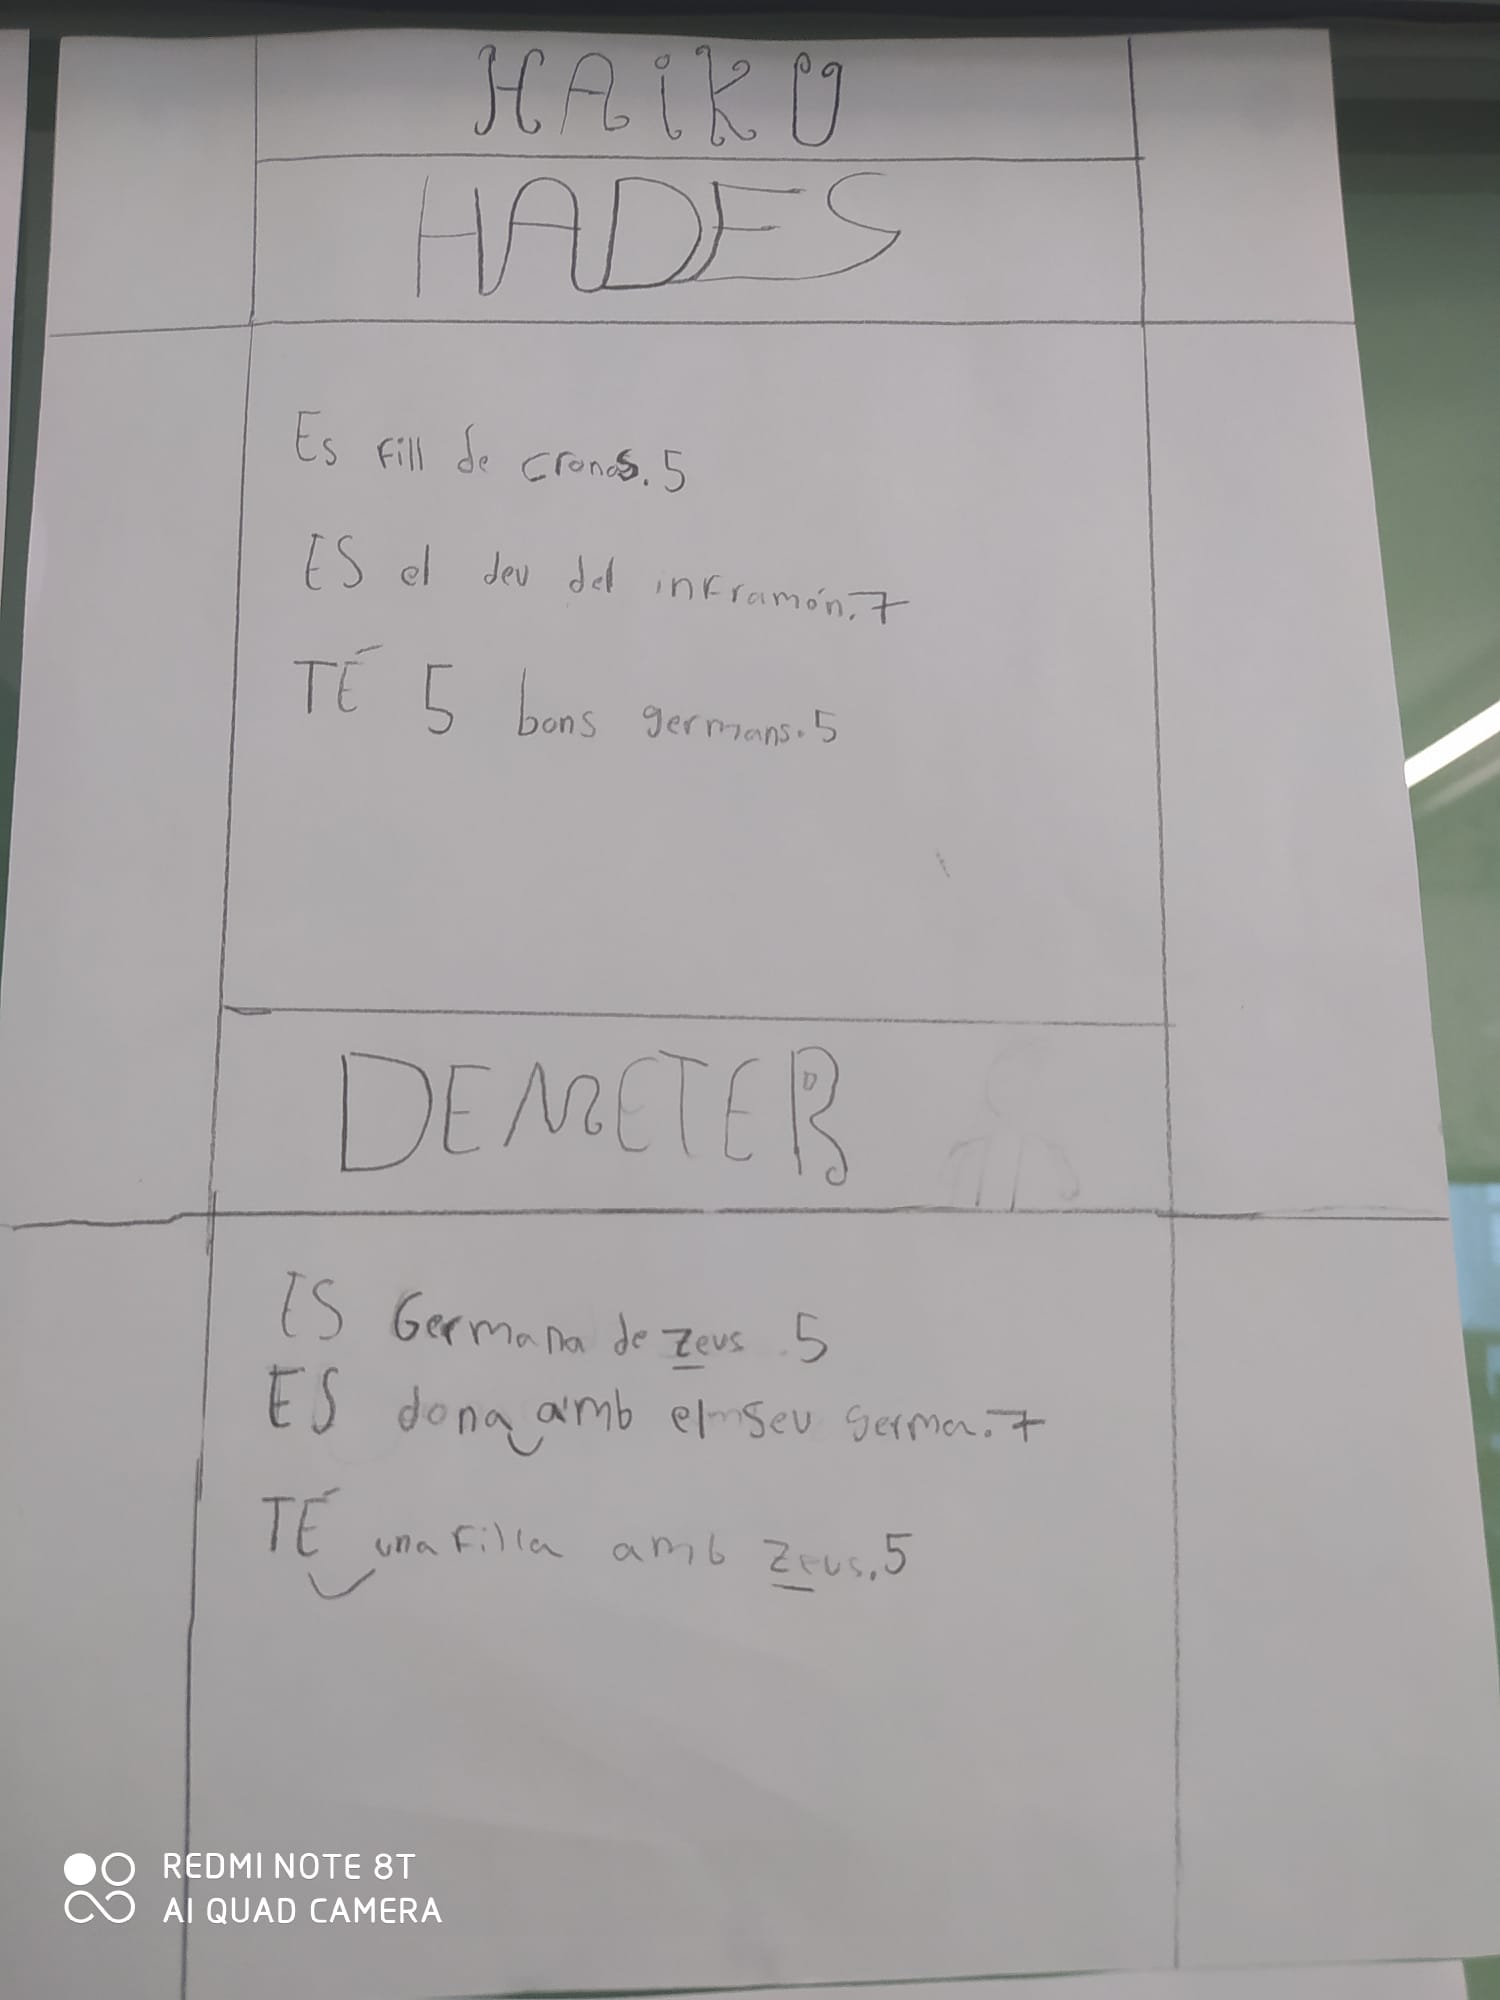 HAiKU
HADES
Es fill de cronos. 5
ES el deu del inframón. 7
TÉ 5 bons germans. 5
DEMETER
ES Germana de Zeus. 5
ES dona amb el seu germa. 7
TÉ una filla amb Zeus. 5
REDMI NOTE 8T
AI QUAD CAMERA